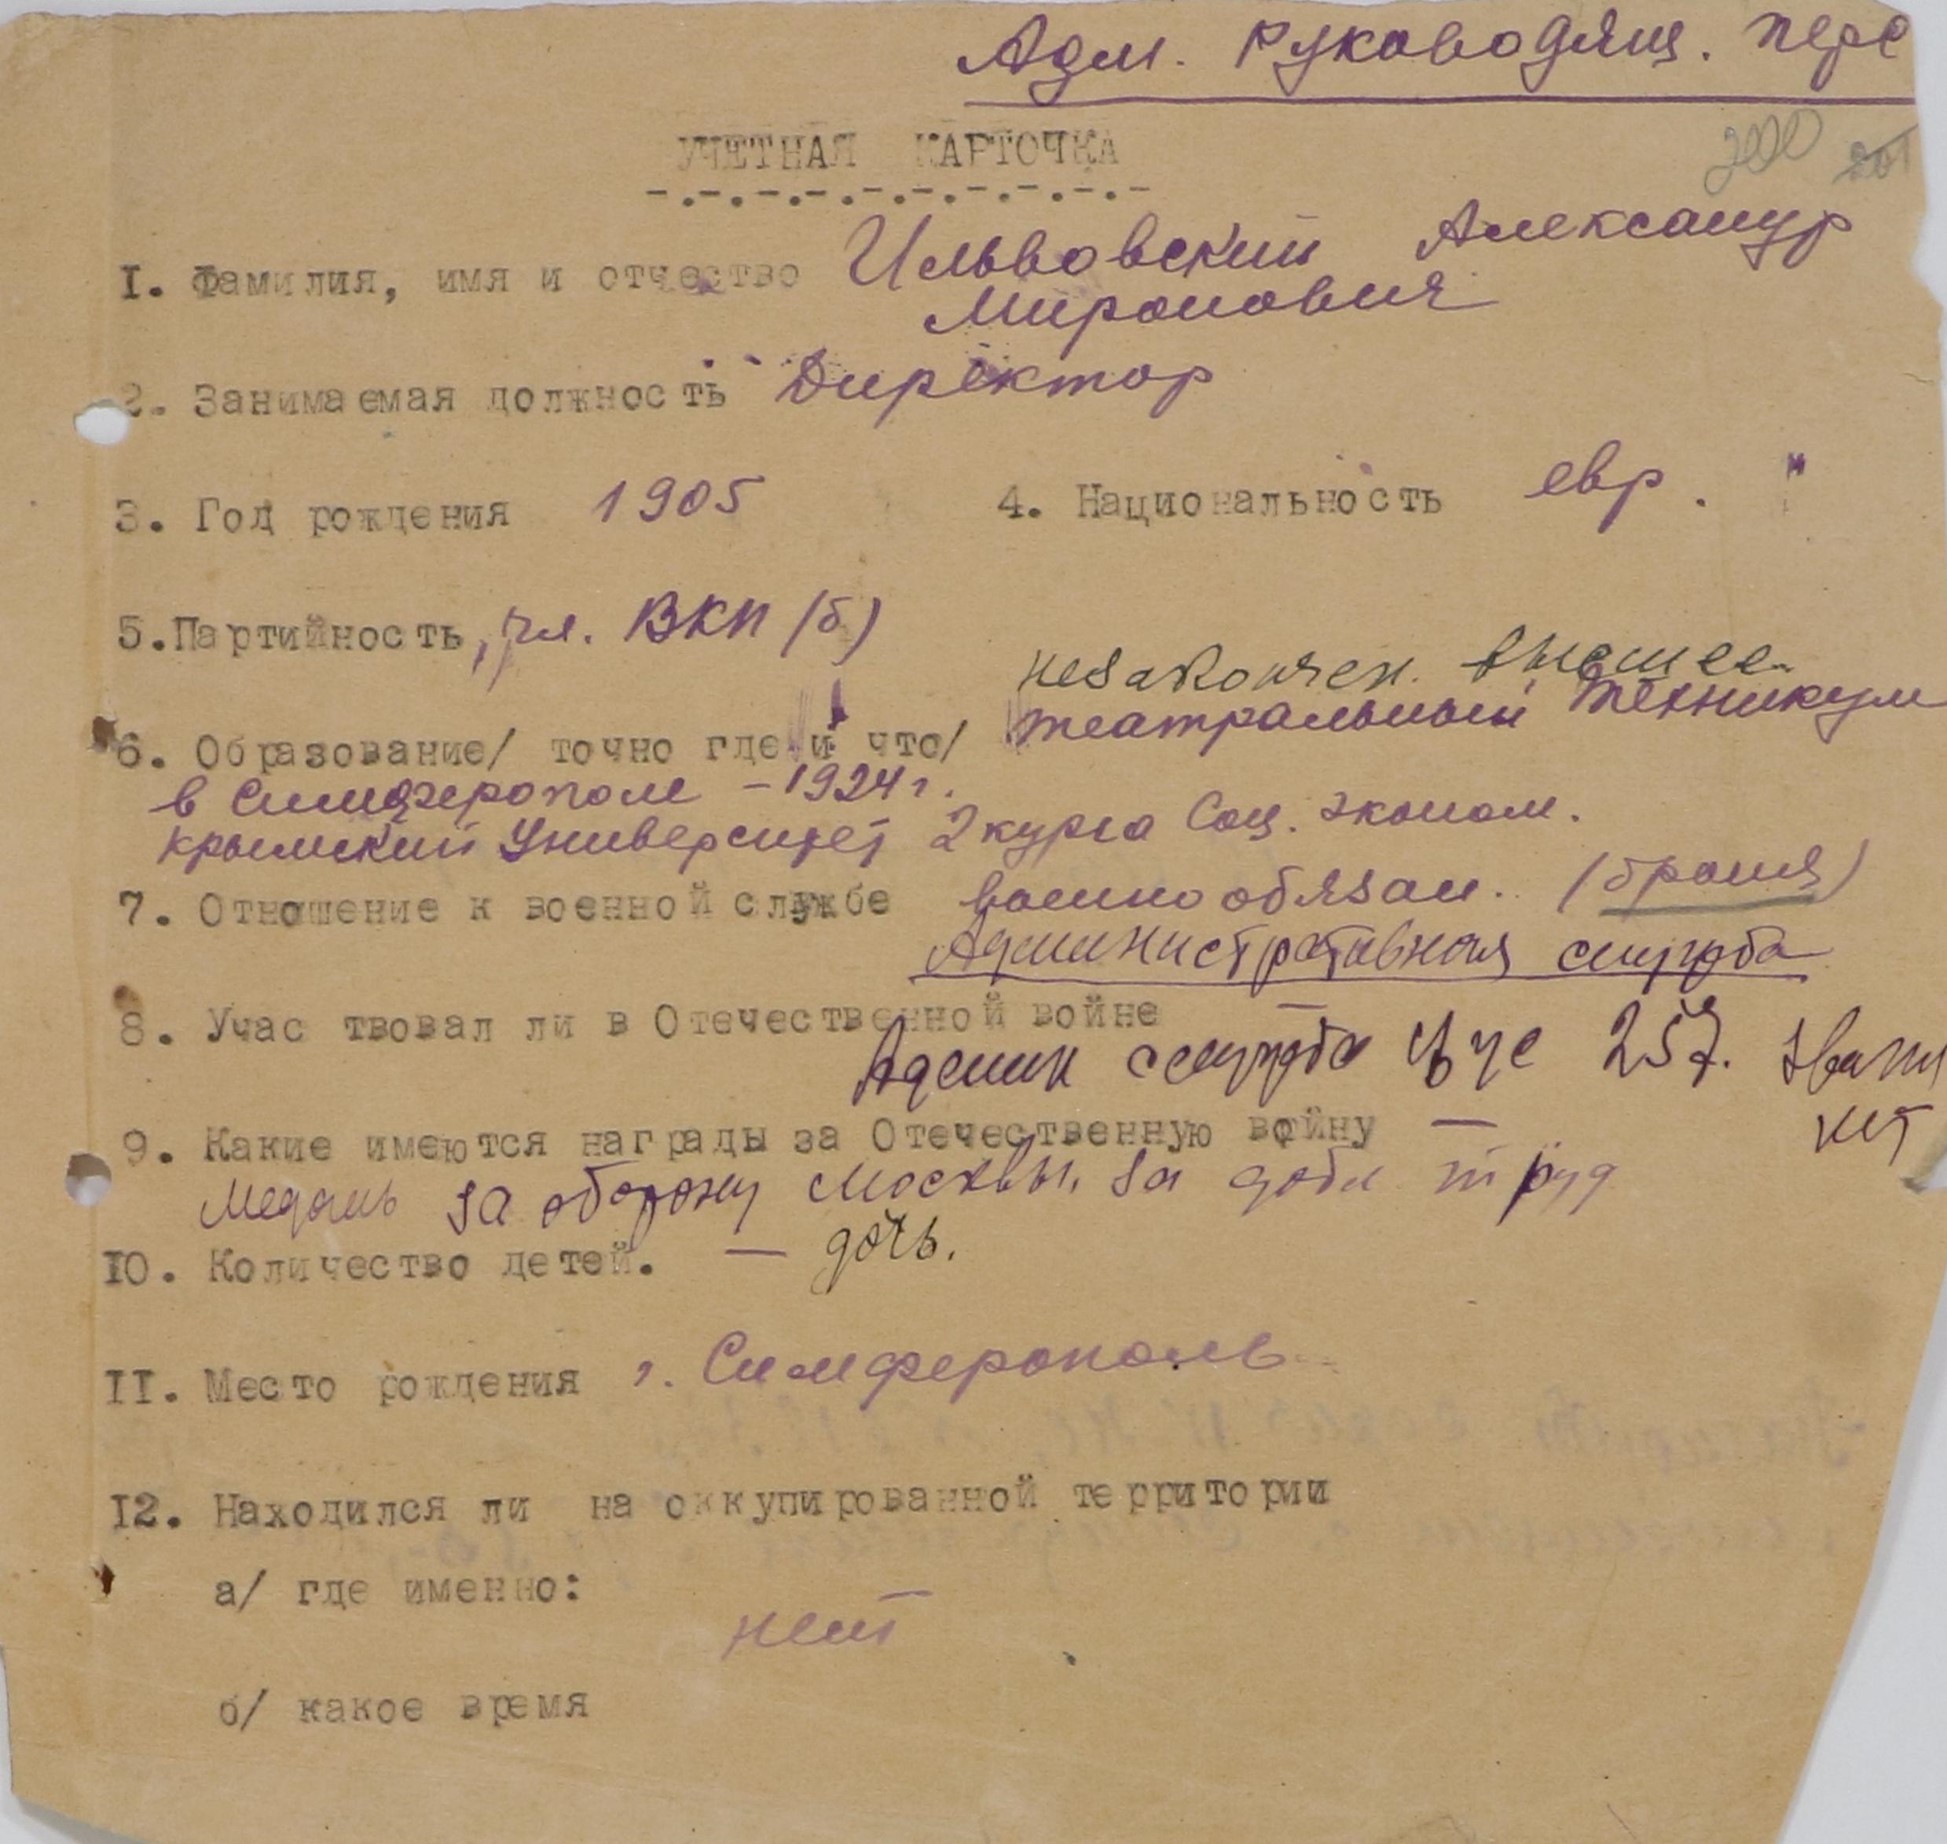 Адм. Руководящ. перс
УЧЕТНАЯ КАРТОЧКА
200 201
I. Фамилия, имя и отчество Ильвовский Александр
Миронович
2. Занимаемая должность Директор
3. Год рождения 1905 4. Национальность евр.
5. Партийность, чл. ВКП (б)
незакончен. высшее
6. Образование/ точно где и что/ театральный техникум
в Симферополе - 1924 г.
Крымский Университет 2 курса Соц. эконом.
7. Отношение к военной службе военнообязан. (броня)
Административная служба
8. Участвовал ли в Отечественной войне —
Админ служба ВУС 257. звани
нет
9. Какие имеются награды за Отечественную войну —
Медаль за оборону Москвы, за добл труд
IO. Количество детей. — дочь.
II. Место рождения г. Симферополь
I2. Находился ли на оккупированной территории
а/ где именно:
нет
б/ какое время